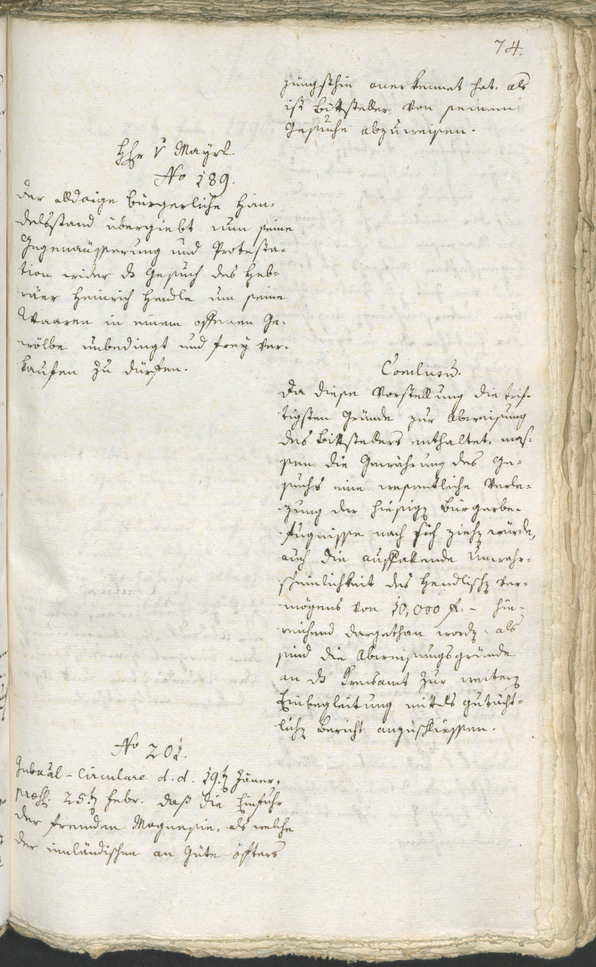 74.
jüngsthin anerkennet hat. als
ist Bittsteller von seinem
Gesuche abzuweisen.
H v Mayrl
No 189.
Der alldaige bürgerliche Han-
delsstand übergiebt nun seine
Gegenäusserung und Protesta-
tion wider das Gesuch des Heb-
räer Heinrich Hendle um seine
Waaren in einem offenen Ge-
wölbe unbedingt und frey ver-
kaufen zu dürfen.
Conclusum.
Da diese Vorstellung die trif-
tigsten Gründe zur Abweisung
des Bittstellers enthaltet, mas-
sen die Gewährung des Ge-
suchs eine wesentliche Verle-
zung der hiesigen Bürgerbe-
fugnisse nach sich ziehen würde,
auch die auffallende Unwahr-
scheinlichkeit des Hendlischen Ver-
mögens von 10,000 f. - hin-
reichend dargethan worden. als
sind die Abweisungsgründe
an das Kreisamt zur weitern
Einbegleitung mittels gutächt-
lichen Bericht anzuschliessen.
No 201.
Gubernial-Circulare d. d. 19ten Jäner,
praes. 25ten febr. daß die Einfuhr
der fremden Magnesie, als welche
der innländischen an Güte öfters